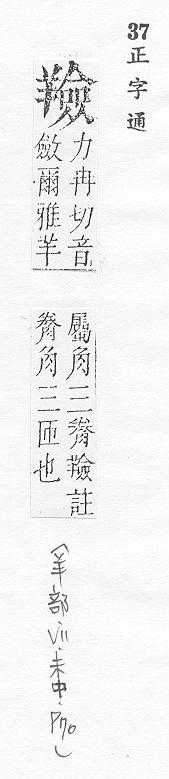 37正字通
羷
力冉切音
斂爾雅羊
屬角三觠羷註
觠角三匝也
(羊部·VII·未中·P70)